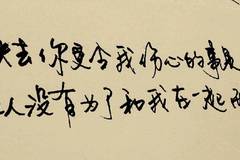 失去你更令我伤心的事是
人没有为了和我在一起而